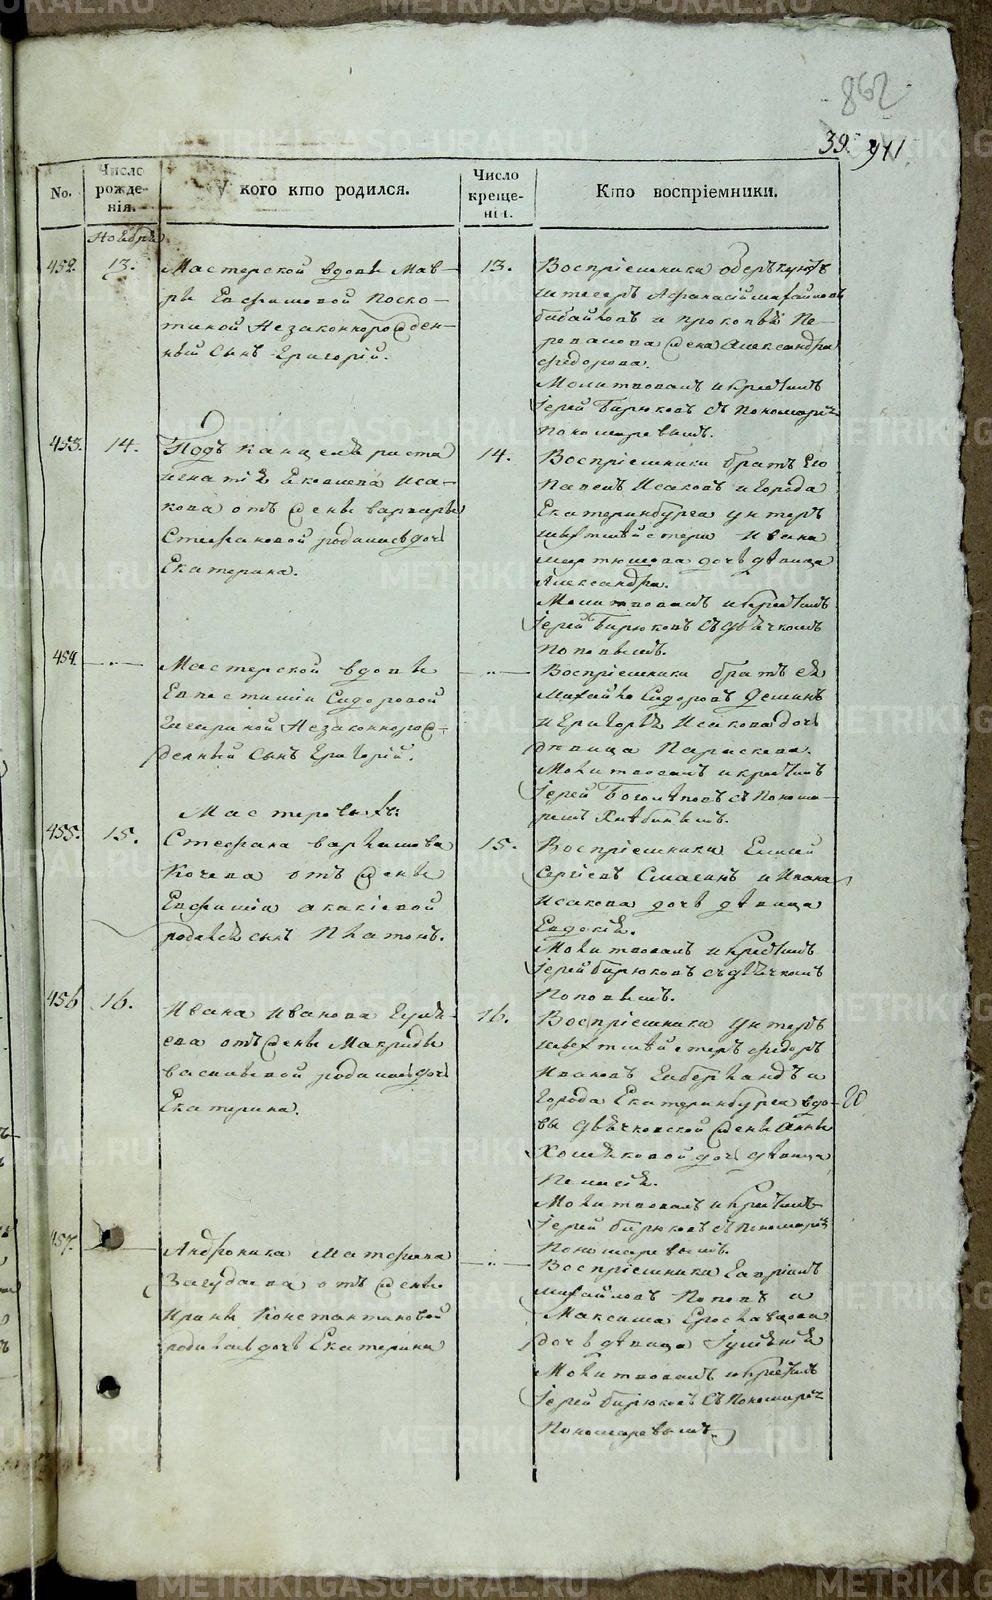 862
39. 911.
No.
Число рожде-
нія.
У кого кто родился.
Число креще-
нія.
Кто воспріемники.
Ноябрь
452. 13.
Мастерской вдовы Мав-
ры Евфимовой Поско-
тиной Незаконнорожден-
ный сынъ Григорій.
13.
Воспріемники
Афанасій Михайловъ
и Прокопья Пе-
жена Александра
Федорова.
Молитвовалъ и крестилъ
Іерей Бирюковъ съ Пономаремъ
Пономаревымъ.
453. 14.
Подъ канцеляриста
Игнатія Яковлева Иса-
кова отъ жены Варвары
Стефановой родилась дочь
Екатерина.
14.
Воспріемники братъ Его
Павелъ Исаковъ и Города
Екатеринбурга унтеръ
шихтмейстера Ивана
дочь дѣвица
Александра.
Молитвовалъ и крестилъ
Іерей Бирюковъ съ дьячкомъ
Поповымъ.
454. — „ —
Мастерской вдовы
Евпестиміи Сидоровой
Незаконнорож-
денный сынъ Григорій.
— „ —
Воспріемники братъ ея
Михайло Сидоровъ
и Григорья Исакова дочь
дѣвица Параскева.
Молитвовалъ и крестилъ
Іерей Боголѣповъ съ Понома-
ремъ Хлѣбинымъ.
Мастеровыхъ:
455. 15.
Стефана Варламова
Кочева отъ жены
Евфиміи Акакіевой
родился сынъ Платонъ.
15.
Воспріемники
Сергіевъ и Ивана
Исакова дочь дѣвица
Евдокія.
Молитвовалъ и крестилъ
Іерей Бирюковъ съ дьячкомъ
Поповымъ.
456 16.
Ивана Иванова
отъ жены Макриды
Васильевой родилась дочь
Екатерина.
16.
Воспріемники унтеръ
шихтмейстеръ Федоръ
Ивановъ и
Города Екатеринбурга вдо-
вы дьячковской жены Анны
Хомяковой дочь дѣвица
Пелагія.
Молитвовалъ и крестилъ
Іерей Бирюковъ съ Пономаремъ
Пономаревымъ.
457. —
Андроника Матфиева
отъ жены
Ирины Константиновой
родилась дочь Екатерина
— „ —
Воспріемники Гавріилъ
Михайловъ Поповъ и
Максима
дочь дѣвица
Молитвовалъ и крестилъ
Іерей Бирюковъ съ Пономаремъ
Пономаревымъ.
METRIKI.GASO-URAL.RU